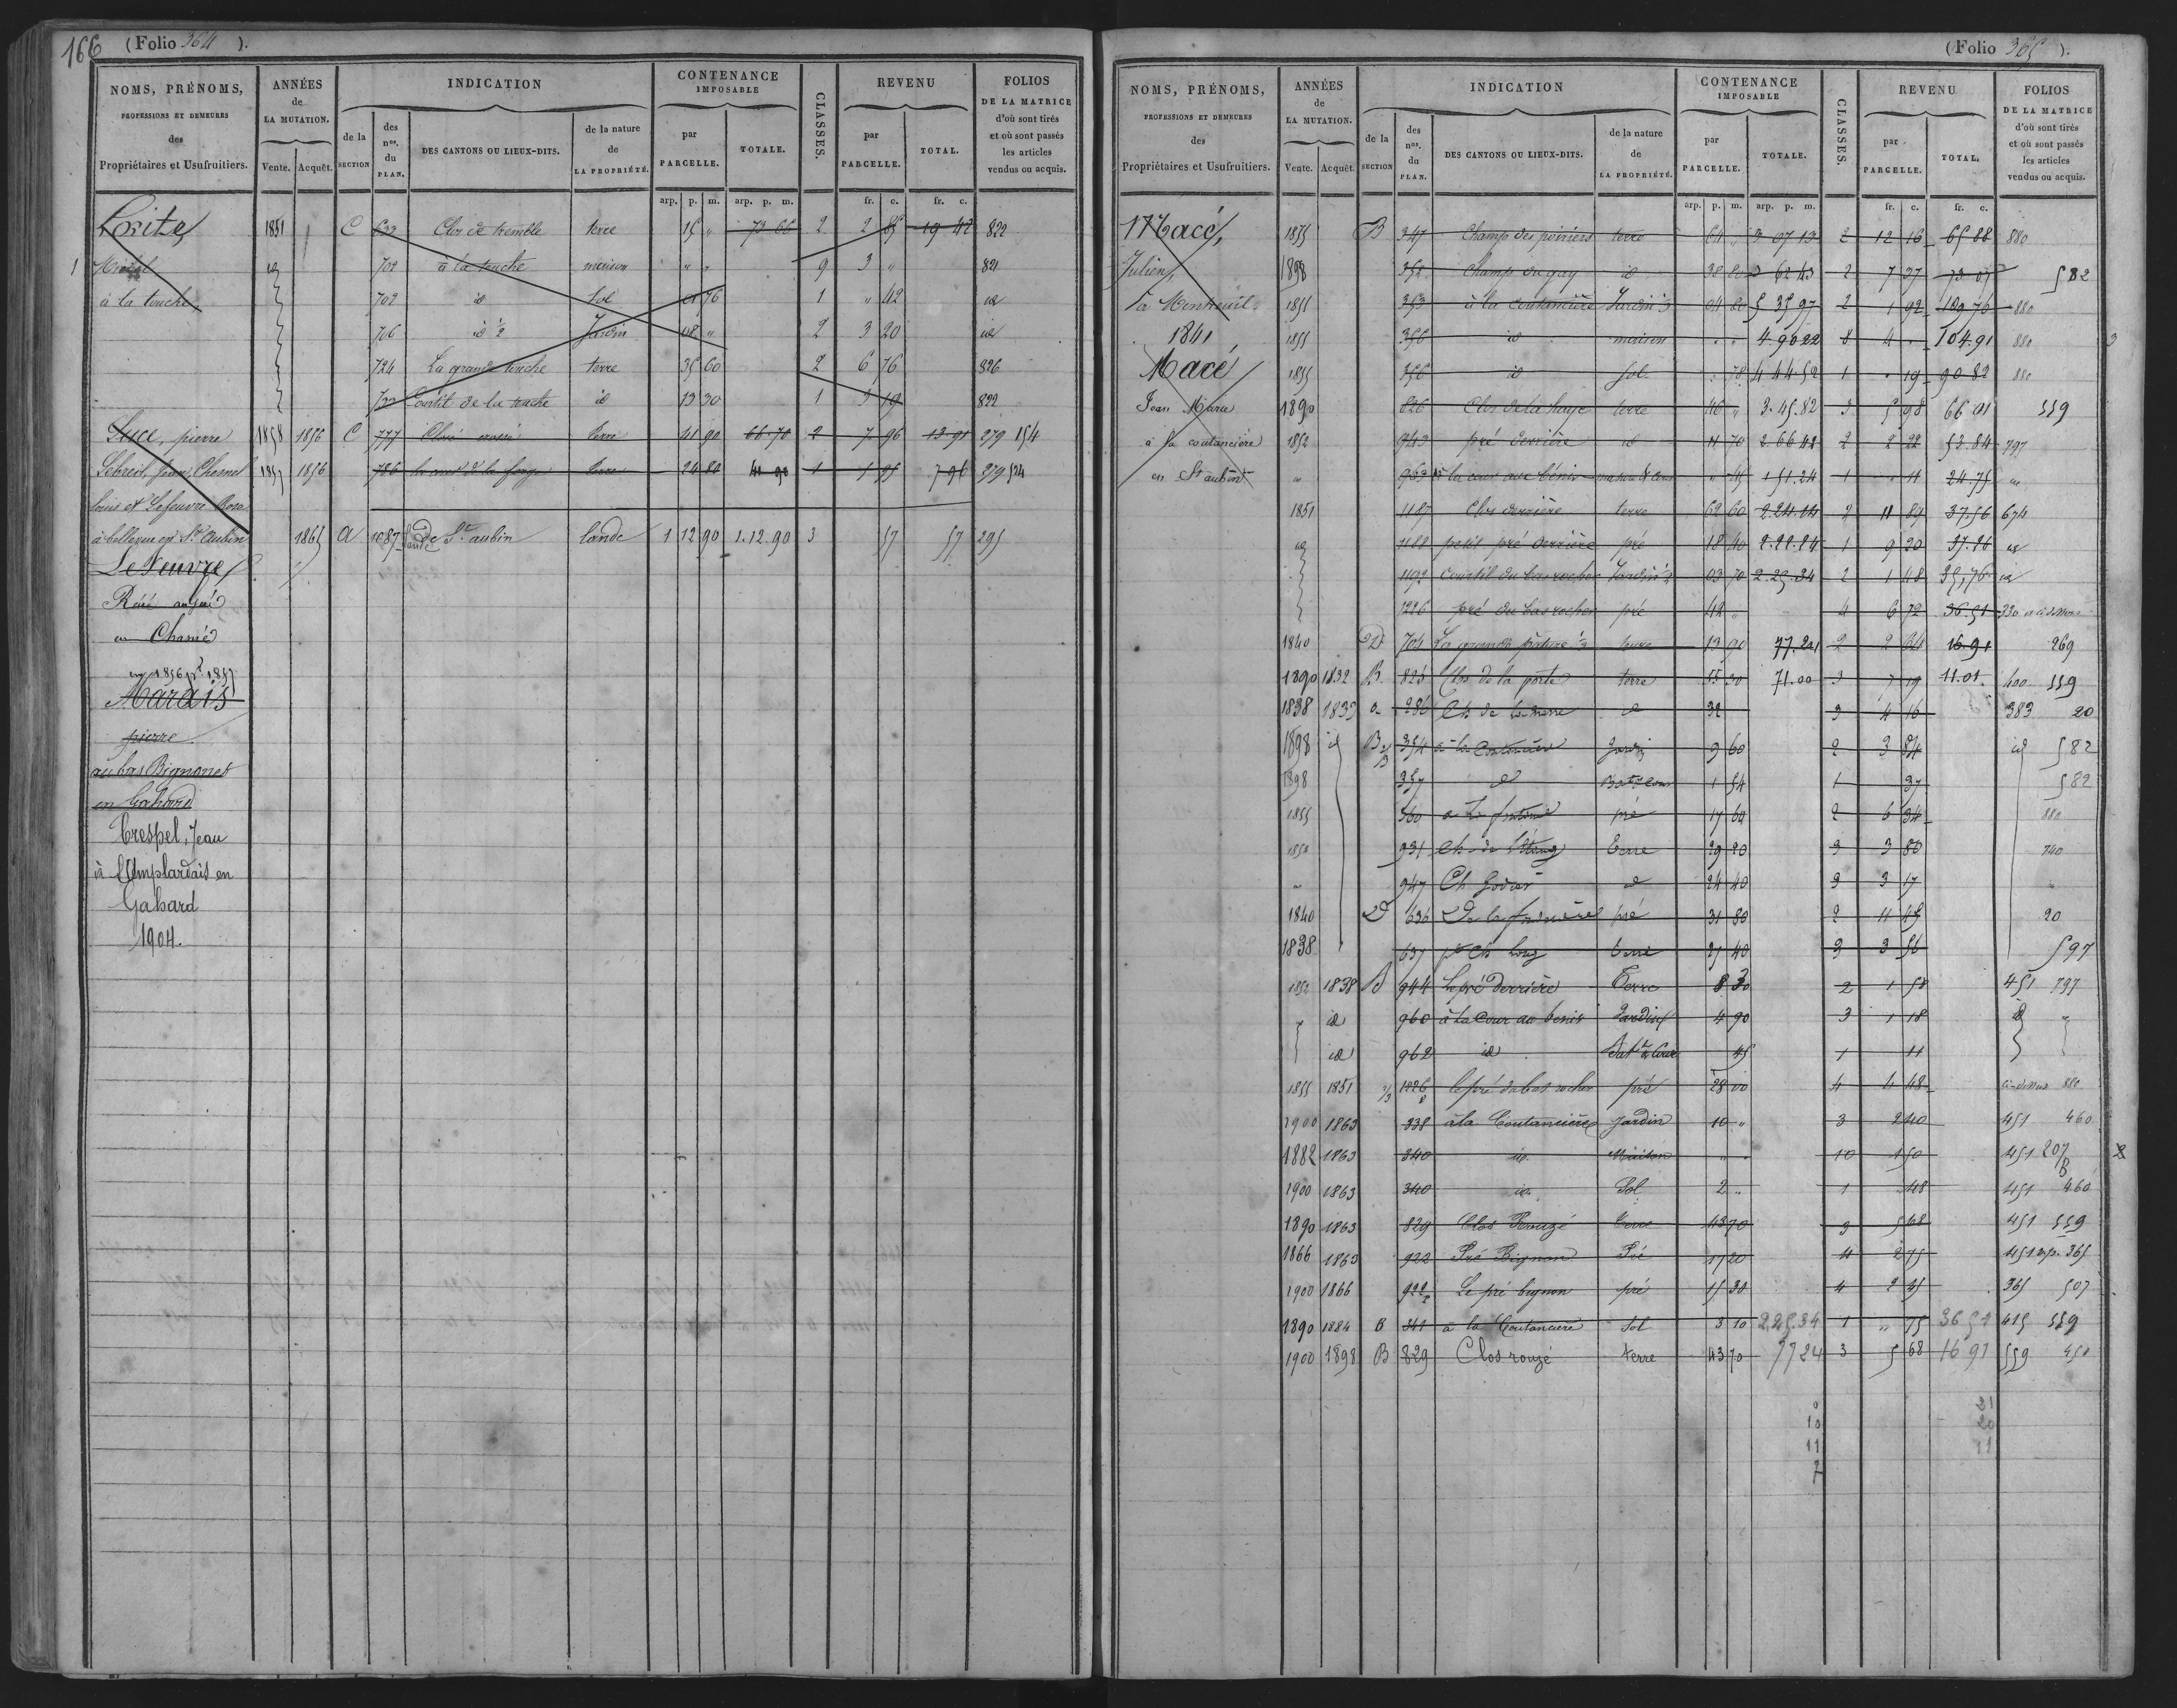 166 (Folio 364 ).
NOMS, PRÉNOMS,
PROFESSIONS ET DEMEURES
des
Propriétaires et Usufruitiers.
ANNÉES
de
LA MUTATION.
Vente. Acquêt.
INDICATION
de la
SECTION
des
nos.
du
PLAN.
DES CANTONS OU LIEUX-DITS.
de la nature
de
LA PROPRIÉTÉ.
CONTENANCE
IMPOSABLE
par
PARCELLE.
TOTALE.
CLASSES.
REVENU
par
PARCELLE.
TOTAL.
FOLIOS
DE LA MATRICE
d'où sont tirés
et où sont passés
les articles
vendus ou acquis.
arp. p. m. arp. p. m. fr. c. fr. c.
1851 C 633 Clos de tremble terre 15 " 73 66 2 2 85 19 42 822
1 Michel id 701 à la touche maison " " 9 3 " 821
à la touche 702 id Sol 01 76 1 " 42 id
706 id Jardin 08 " 2 3 20 id
724 La grande touche terre 35 60 2 6 76 826
733 Courtil de la id 13 30 1 3 19 822
pierre 1858 1856 C 777 terre 41 90 66.70 2 7 96 13 91 279 154
Lebreil, Jean, Chesnel 1857 1856 786 de la forge terre 24 80 41 90 1 5 95 7 96 279 524
louis et Lefeuvre Rose
à bellevue en St Aubin 1865 a 1087 Lande de St aubin lande 1 12 90 1.12.90 3 57 57 295
Lefeuvre
René
en Chasné
en 1856 pr 1857
Marais
pierre
au bas Bignonet
en Gahard
Crespel, Jean
à l'Emplardais en
Gahard
1904.
(Folio 365 ).
NOMS, PRÉNOMS,
PROFESSIONS ET DEMEURES
des
Propriétaires et Usufruitiers.
ANNÉES
de
LA MUTATION.
Vente. Acquêt.
INDICATION
de la
SECTION
des
nos.
du
PLAN.
DES CANTONS OU LIEUX-DITS.
de la nature
de
LA PROPRIÉTÉ.
CONTENANCE
IMPOSABLE
par
PARCELLE.
TOTALE.
CLASSES.
REVENU
par
PARCELLE.
TOTAL.
FOLIOS
DE LA MATRICE
d'où sont tirés
et où sont passés
les articles
vendus ou acquis.
arp. p. m. arp. p. m. fr. c. fr. c.
Macé, 1855 B 347 Champ des poiriers terre 64 " 3 07 13 2 12 16 65 88 880
Julien, 1898 352 Champ du gay id 38 80 3 62 43 2 7 37 582
à Montreuil 1855 353 à la coutancière Jardin 04 80 5 35 97 2 1 92 109 76 880
1841 1855 356 id maison " " 4 90 22 8 4 " 104.91 880 3
Macé 1855 356 id Sol " 78 4 44 52 1 " 19 90 82 880
Jean Marie 1890 826 Clos de la haye terre 46 " 3.45.82 3 5 98 66 01 559
à la coutancière 1852 943 pré derrière id 11 70 2 66 42 2 2 22 53.84 797
en St aubin id 963 à la cour aux bénis maison & cour " 45 1 51.24 1 " 11 24.75 id
1851 1187 Clos derrière terre 62 60 2.24.14 2 11 89 37.56 674
id 1188 petit pré derrière pré 18 40 2.22.24 1 9 20 37.26 id
1192 Courtil du bas rocher Jardin 03 70 2.25.34 2 1 48 35,76 id
1226 pré du bas rocher pré 42 " 4 6 72 36 51 330
1840 D 704 La grande pâture terre 13 90 77.24 2 2 64 16.91 269
1890 1832 B 825 Clos de la porte terre 55 30 71.00 3 7 19 11.01 400 559
1838 1833 a 286 Ch de la id 32 3 4 16 383 20
1898 id B 354 à la Coutancière Jardin 9 60 2 3 84 id 582
1898 357 id Bat. & cour 1 54 1 37 582
1855 360 à la fontaine pré 17 60 2 6 34 880
1850 931 Ch de l'étang Terre 29 20 3 3 80 740
947 Ch Godier id 24 40 3 3 17
1840 D 636 De la pré 31 80 2 11 45 20
1838 637 pt Ch long terre 27 40 3 3 56 597
1852 1838 B 944 Le pré derrière Terre 8 30 2 1 58 451 797
id 960 à la Cour au benis Jardin 4 90 3 1 18 id
id 962 id Bat. & Cour 45 1 11
1855 1851 2/3 1226 le pré du bas rocher pré 28 00 4 4 48 ci-dessus 880
1900 1863 338 à la Coutancière Jardin 10 " 3 2 40 451 460
1882 1863 340 id Maison " " 10 1 50 451 207 2
1900 1863 340 id Sol 2 " 1 48 451 460
1890 1863 829 Clos Rouzé Terre 43 70 3 5 68 451 559
1866 1863 922 Pré Bignon Pré 17 20 4 2 75 451 365
1900 1866 922 Le pré bignon pré 15 30 4 2 45 365 507
1890 1884 B 341 à la Coutancière Sol 3 10 2.25.34 1 " 75 36 51 415 559
1900 1898 B 829 Clos rouzé terre 43 70 77 24 3 5 68 16 91 559 450
21
10 20
11 11
7